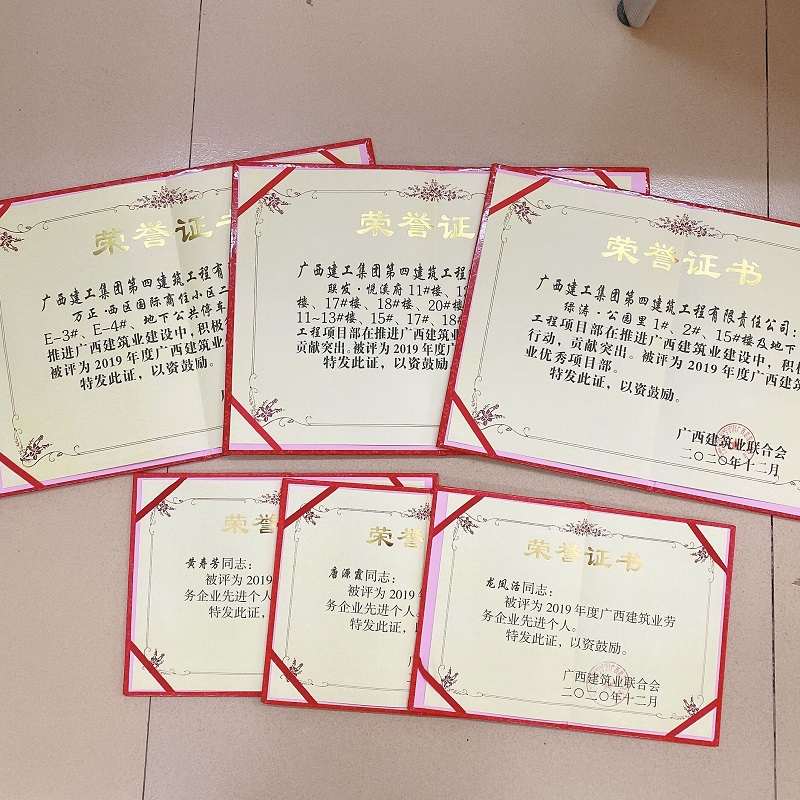 荣誉证书
广西建工集团第四建筑工程有
万正·西区国际商住小区二
E-3#、E-4#、地下公共停车
推进广西建筑业建设中，积极
被评为2019年度广西建筑业
特发此证，以资鼓励。
荣誉证
广西建工集团第四建筑工程
联发·悦溪府 11#楼、
楼、17#楼、18#楼、20#楼
11~13#楼、15#、17#、18#
工程项目部在推进广西建筑业
贡献突出。被评为2019年度广
特发此证，以资鼓励
荣誉证书
广西建工集团第四建筑工程有限责任公司：
绿涛·公园里 1#、2#、15#楼及地下
工程项目部在推进广西建筑业建设中，积极
行动，贡献突出。被评为2019年度广西建筑
业优秀项目部。
特发此证，以资鼓励。
广西建筑业联合会
二〇二〇年十二月
荣誉
黄寿芳同志：
被评为2019
务企业先进个人
特发此证，
荣誉
唐源霞同志：
被评为2019年
务企业先进个人。
特发此证，以
荣誉证书
龙凤洁同志：
被评为2019年度广西建筑业劳
务企业先进个人。
特发此证，以资鼓励。
广西建筑业联合会
二〇二〇年十二月